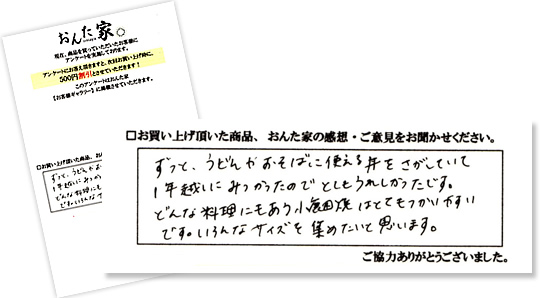 おんた家。
現在、商品を買っていただいたお客様に
アンケートを実施しております。
アンケートにお答え頂きますと、次回お買い上げ時に、
500円割引とさせていただきます!
このアンケートはおんた家
【お客様ギャラリー】に掲載させていただきます。
□お買い上げ頂いた商品、おん
ずっと、うどんやお
1年越しにみつか
どんな料理にもあ
です。いろんなサ
□お買い上げ頂いた商品、おんた家の感想・ご意見をお聞かせください。
ずっと、うどんやおそばに使える丼をさがしていて
1年越しにみつかったのでとてもうれしかったです。
どんな料理にもあう小鹿田焼はとてもつかいやすい
です。いろんなサイズを集めたいと思います。
ご協力ありがとうございました。